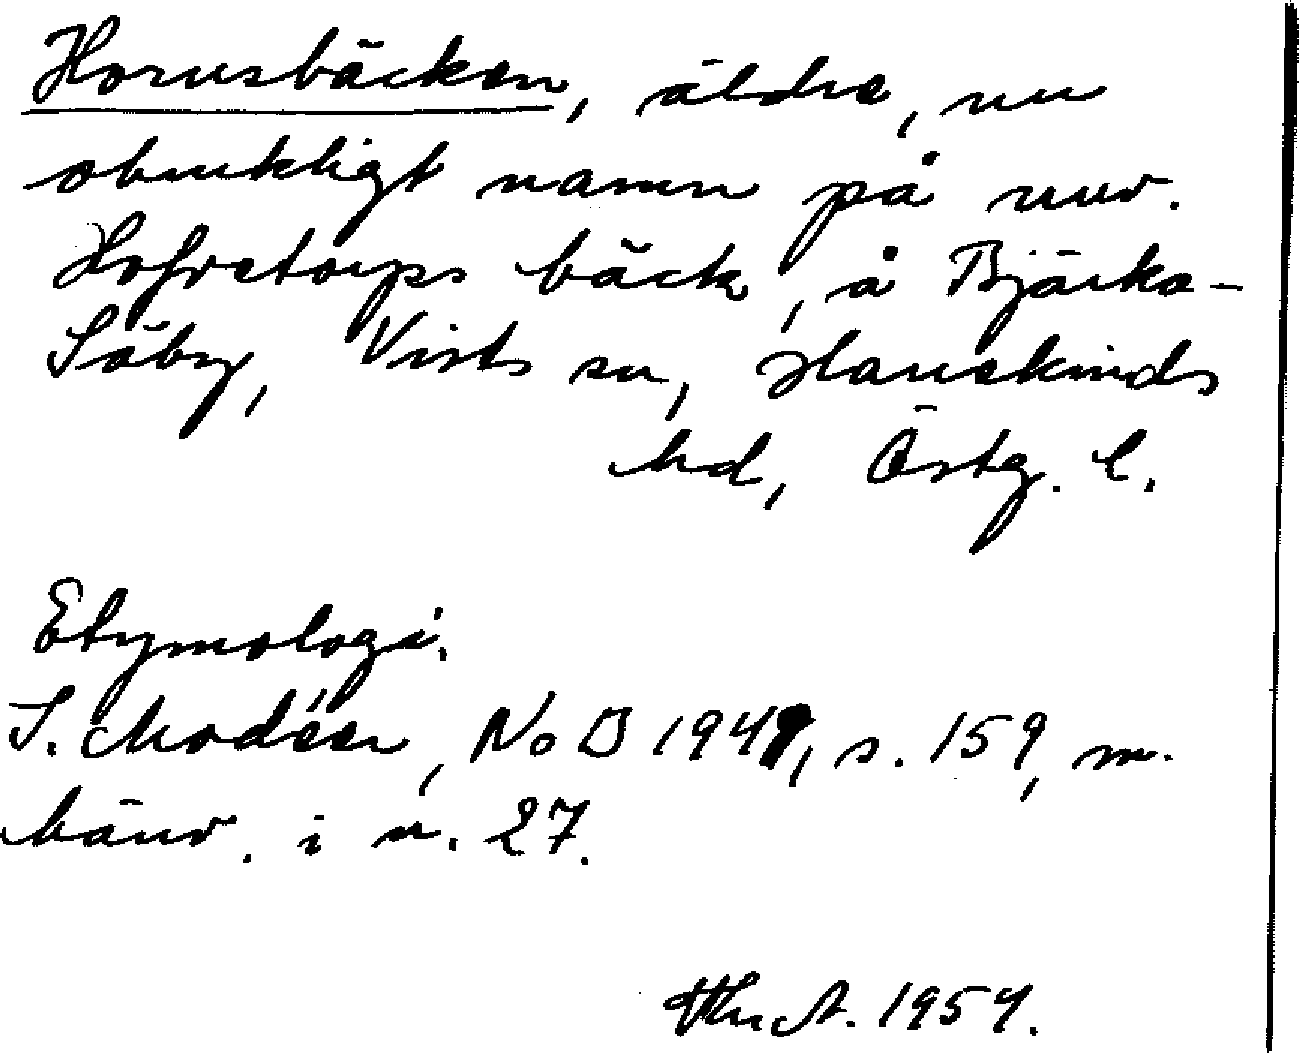 Horusbäcken, äldre, nu
obrukligt namn på nuv.
Hofretorps bäck, å Bjärka-
Säby, Vists sn, Hanekinds
hd, Östg. l.
Etymologi.
I. Modéer, NoB 1949, s. 159, m.
hänv. i n. 27.
1954.